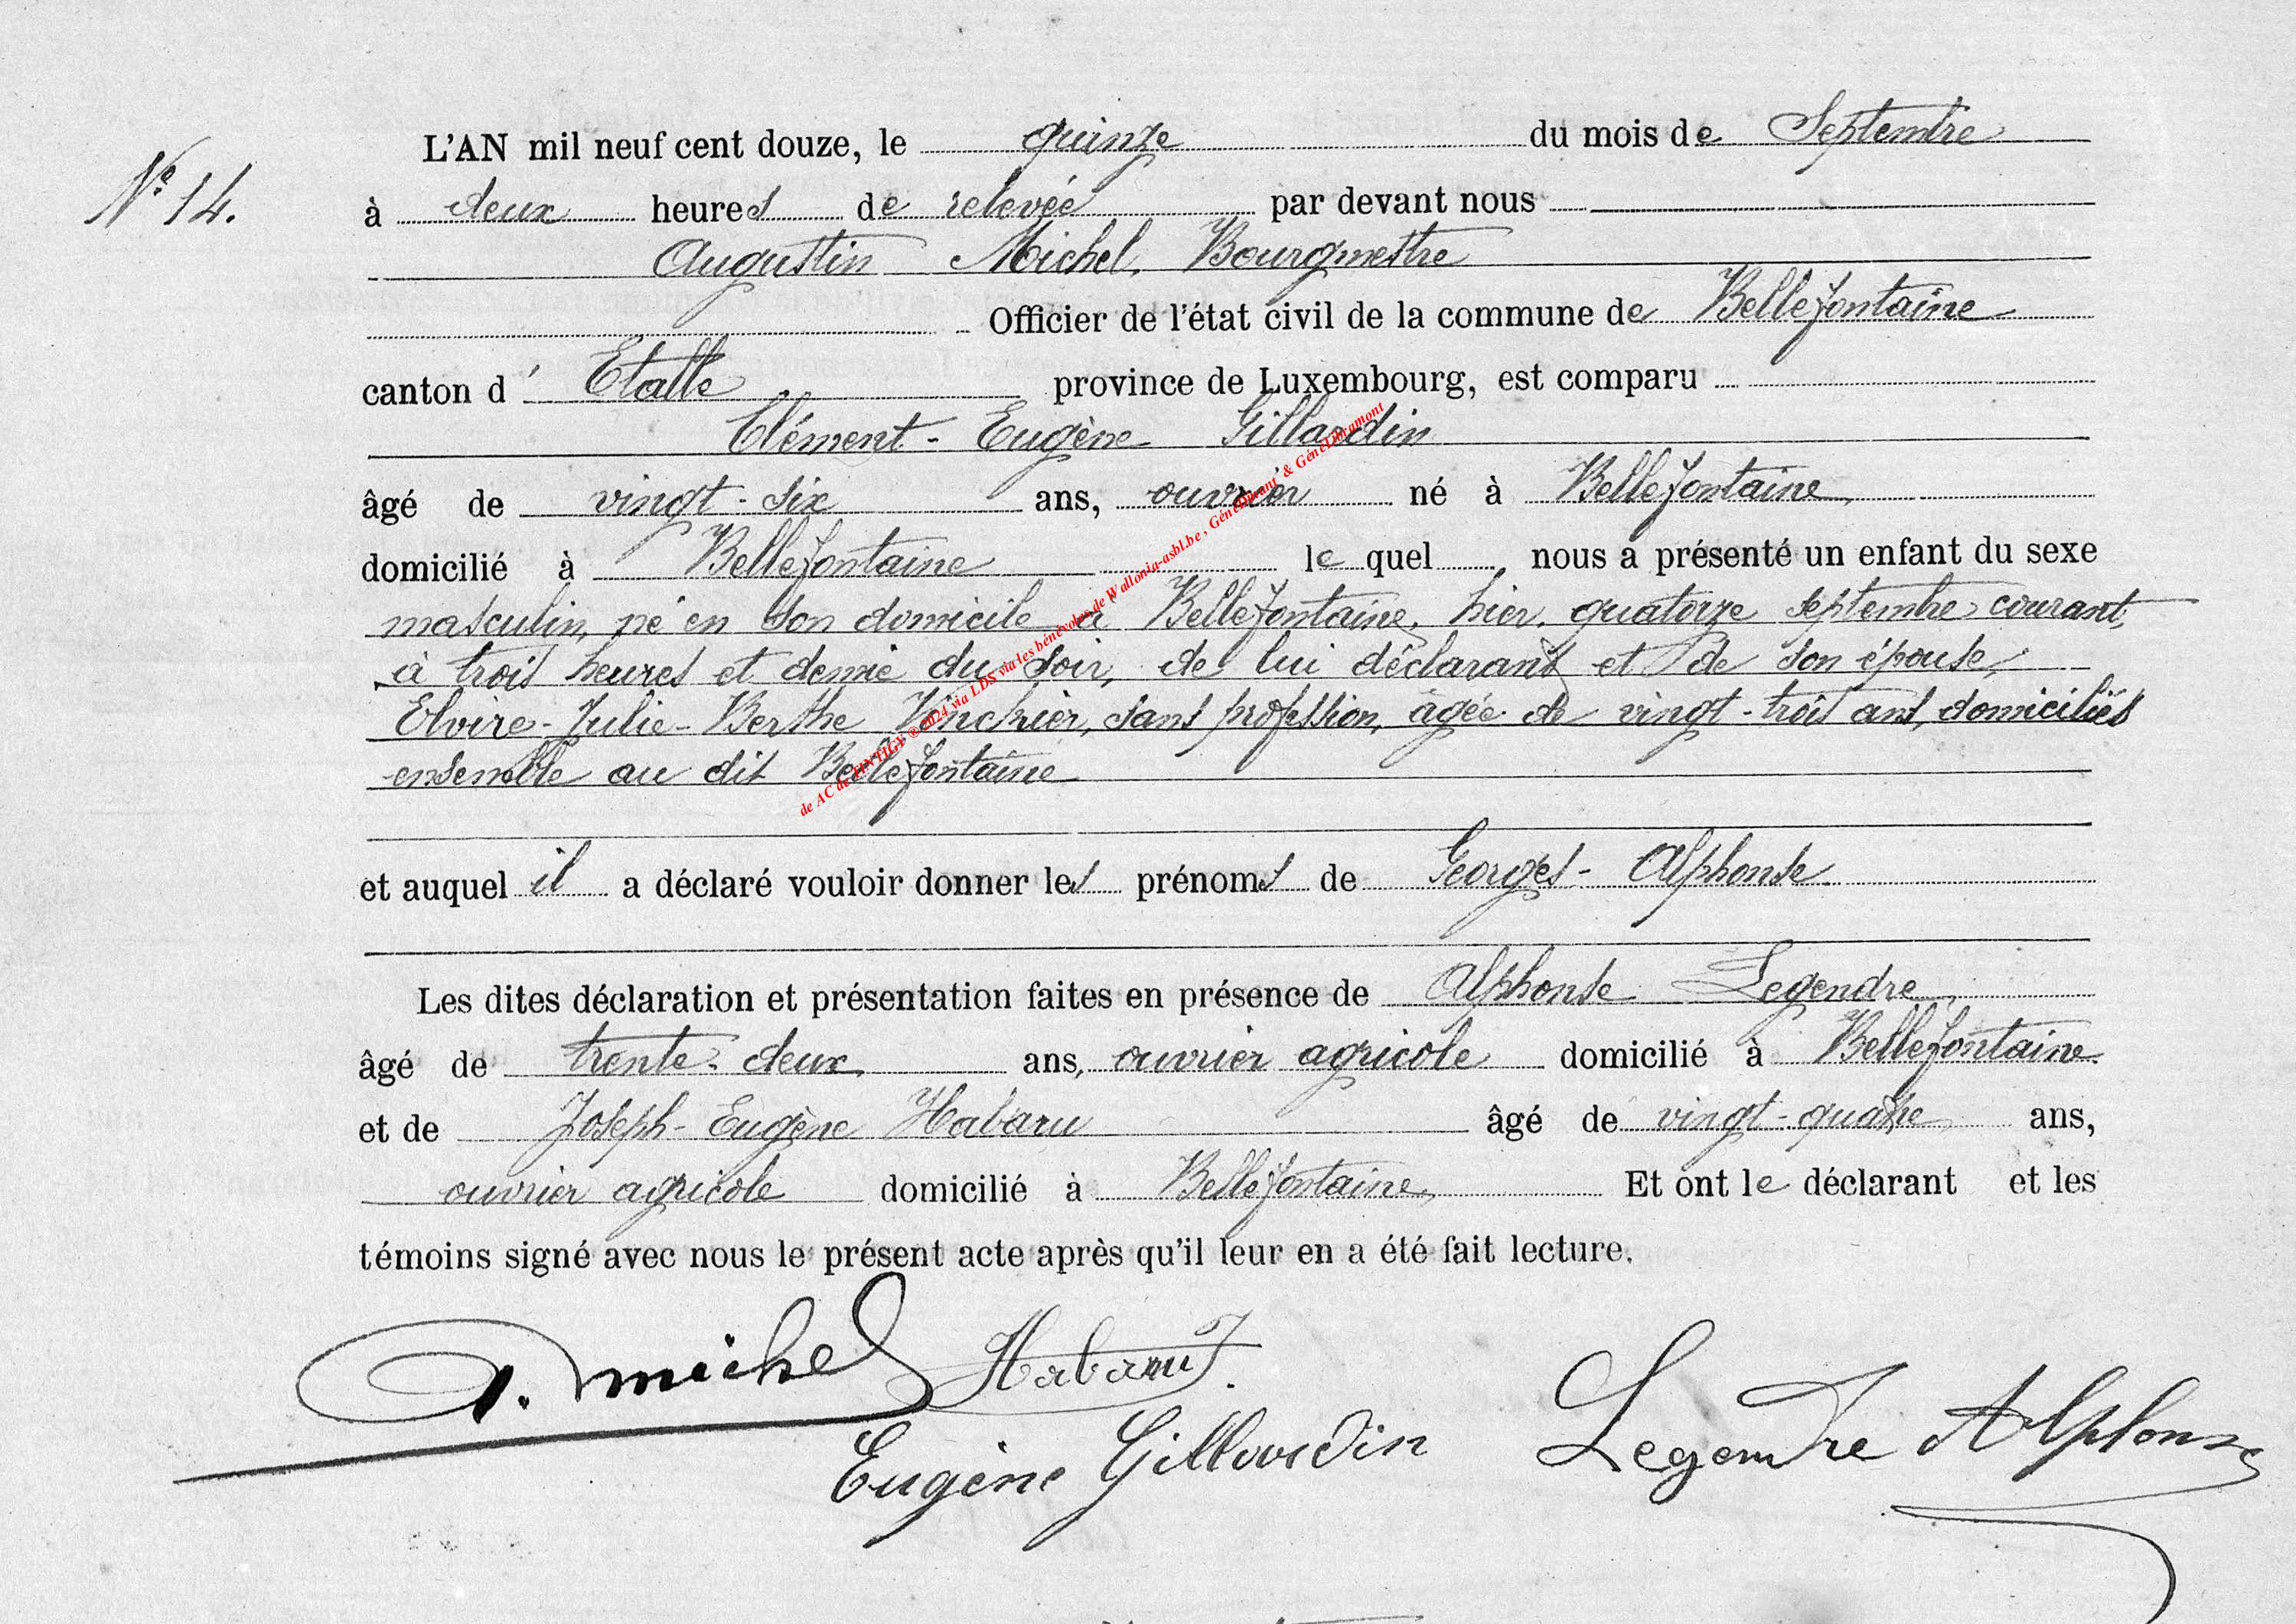 N° 14.
L'AN mil neuf cent douze, le quinze du mois de Septembre
à deux heures de relevée par devant nous
Augustin Michel, Bourgmestre
Officier de l'état civil de la commune de Bellefontaine
canton d'Etalle province de Luxembourg, est comparu
Clément-Eugène Gillardin
âgé de vingt-six ans, ouvrier né à Bellefontaine,
domicilié à Bellefontaine lequel nous a présenté un enfant du sexe
masculin, né en son domicile à Bellefontaine, hier, quatorze septembre courant,
à trois heures et demie du soir, de lui déclarant et de son épouse,
Elvire-Julie-Berthe, sans profession, âgée de vingt-trois ans, domiciliés
ensemble au dit Bellefontaine
et auquel il a déclaré vouloir donner les prénoms de Georges-Alphonse
Les dites déclaration et présentation faites en présence de Alphonse Legendre,
âgé de trente-deux ans, ouvrier agricole domicilié à Bellefontaine
et de Joseph-Eugène Habaru âgé de vingt-quatre ans,
ouvrier agricole domicilié à Bellefontaine, Et ont le déclarant et les
témoins signé avec nous le présent acte après qu'il leur en a été fait lecture.
A. Michel Habaru J.
Eugène Gillardin Legendre Alphonse
de AC de TINTIGY ® 2024 via LDS via les bénévoles de Wallonia-asbl.be, GénéDinant & GénéLibramont